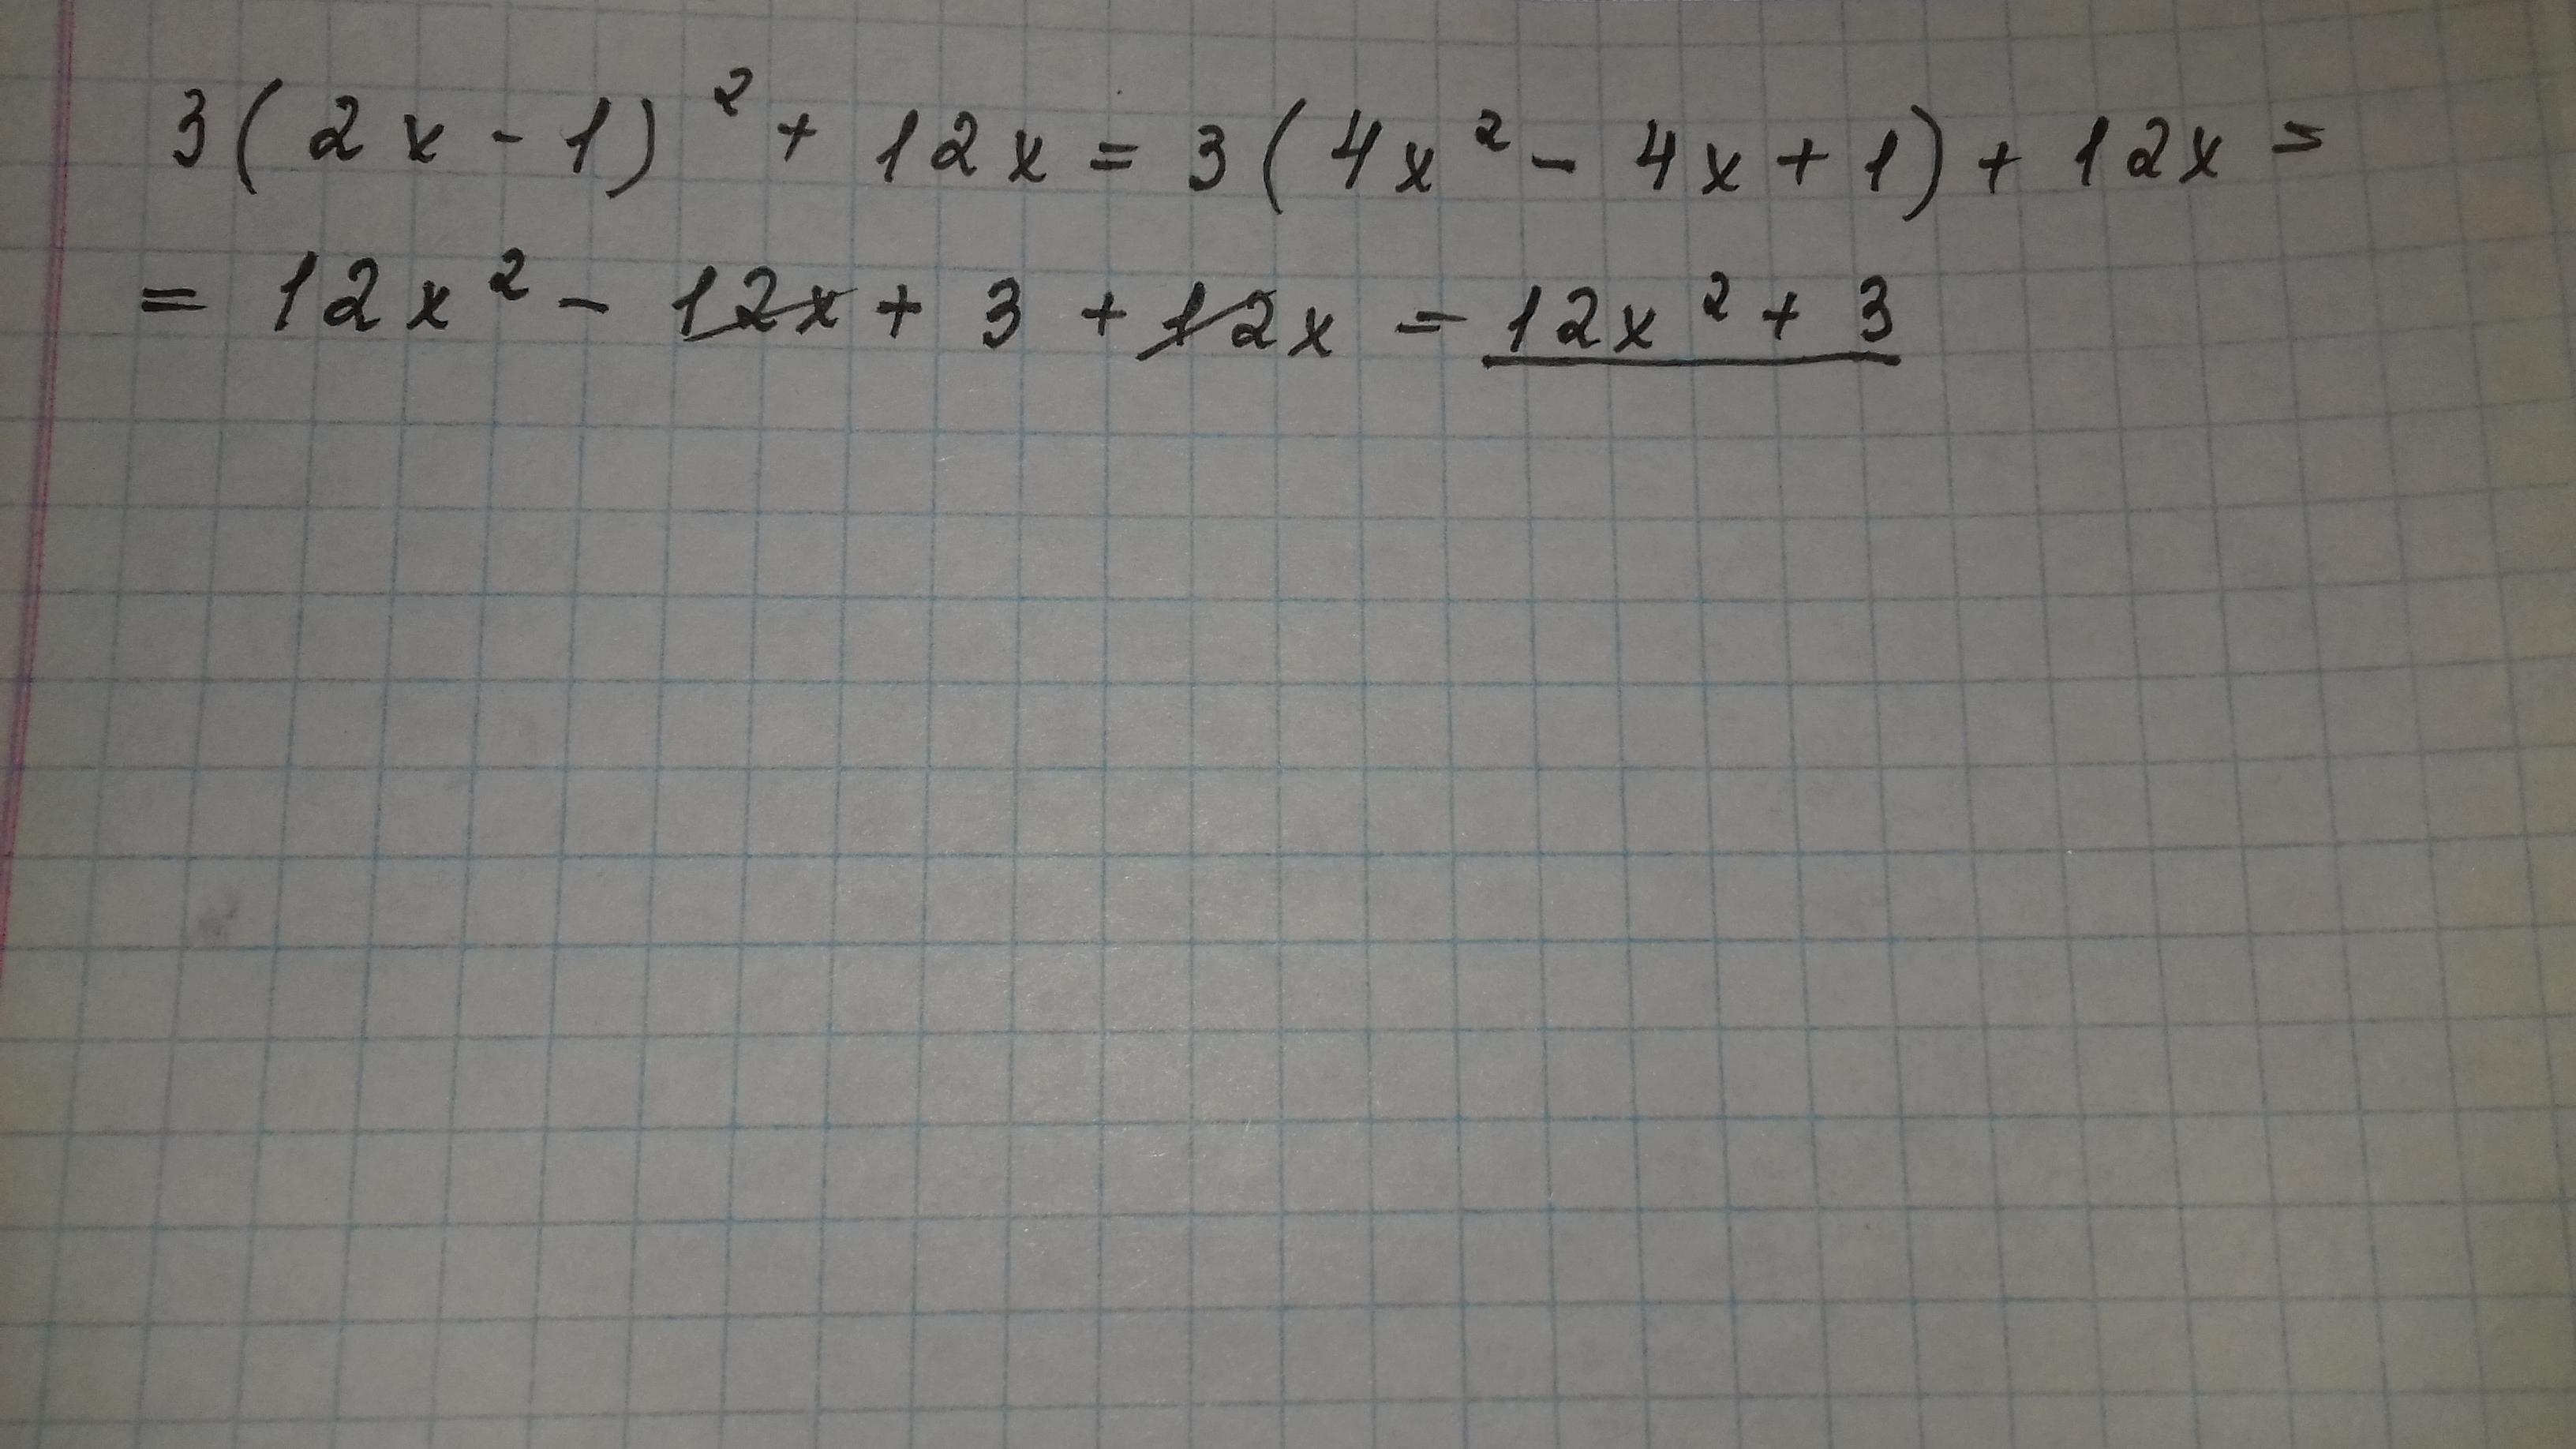 3(2x-1)² + 12x = 3(4x² - 4x + 1) + 12x =
= 12x² - 12x + 3 + 12x = 12x² + 3